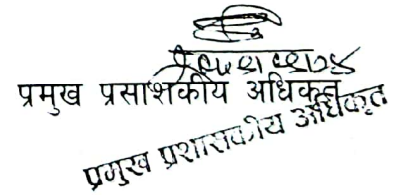 प्रमुख प्रसाशकीय अधिकृत
प्रमुख प्रशासकीय अधिकृत